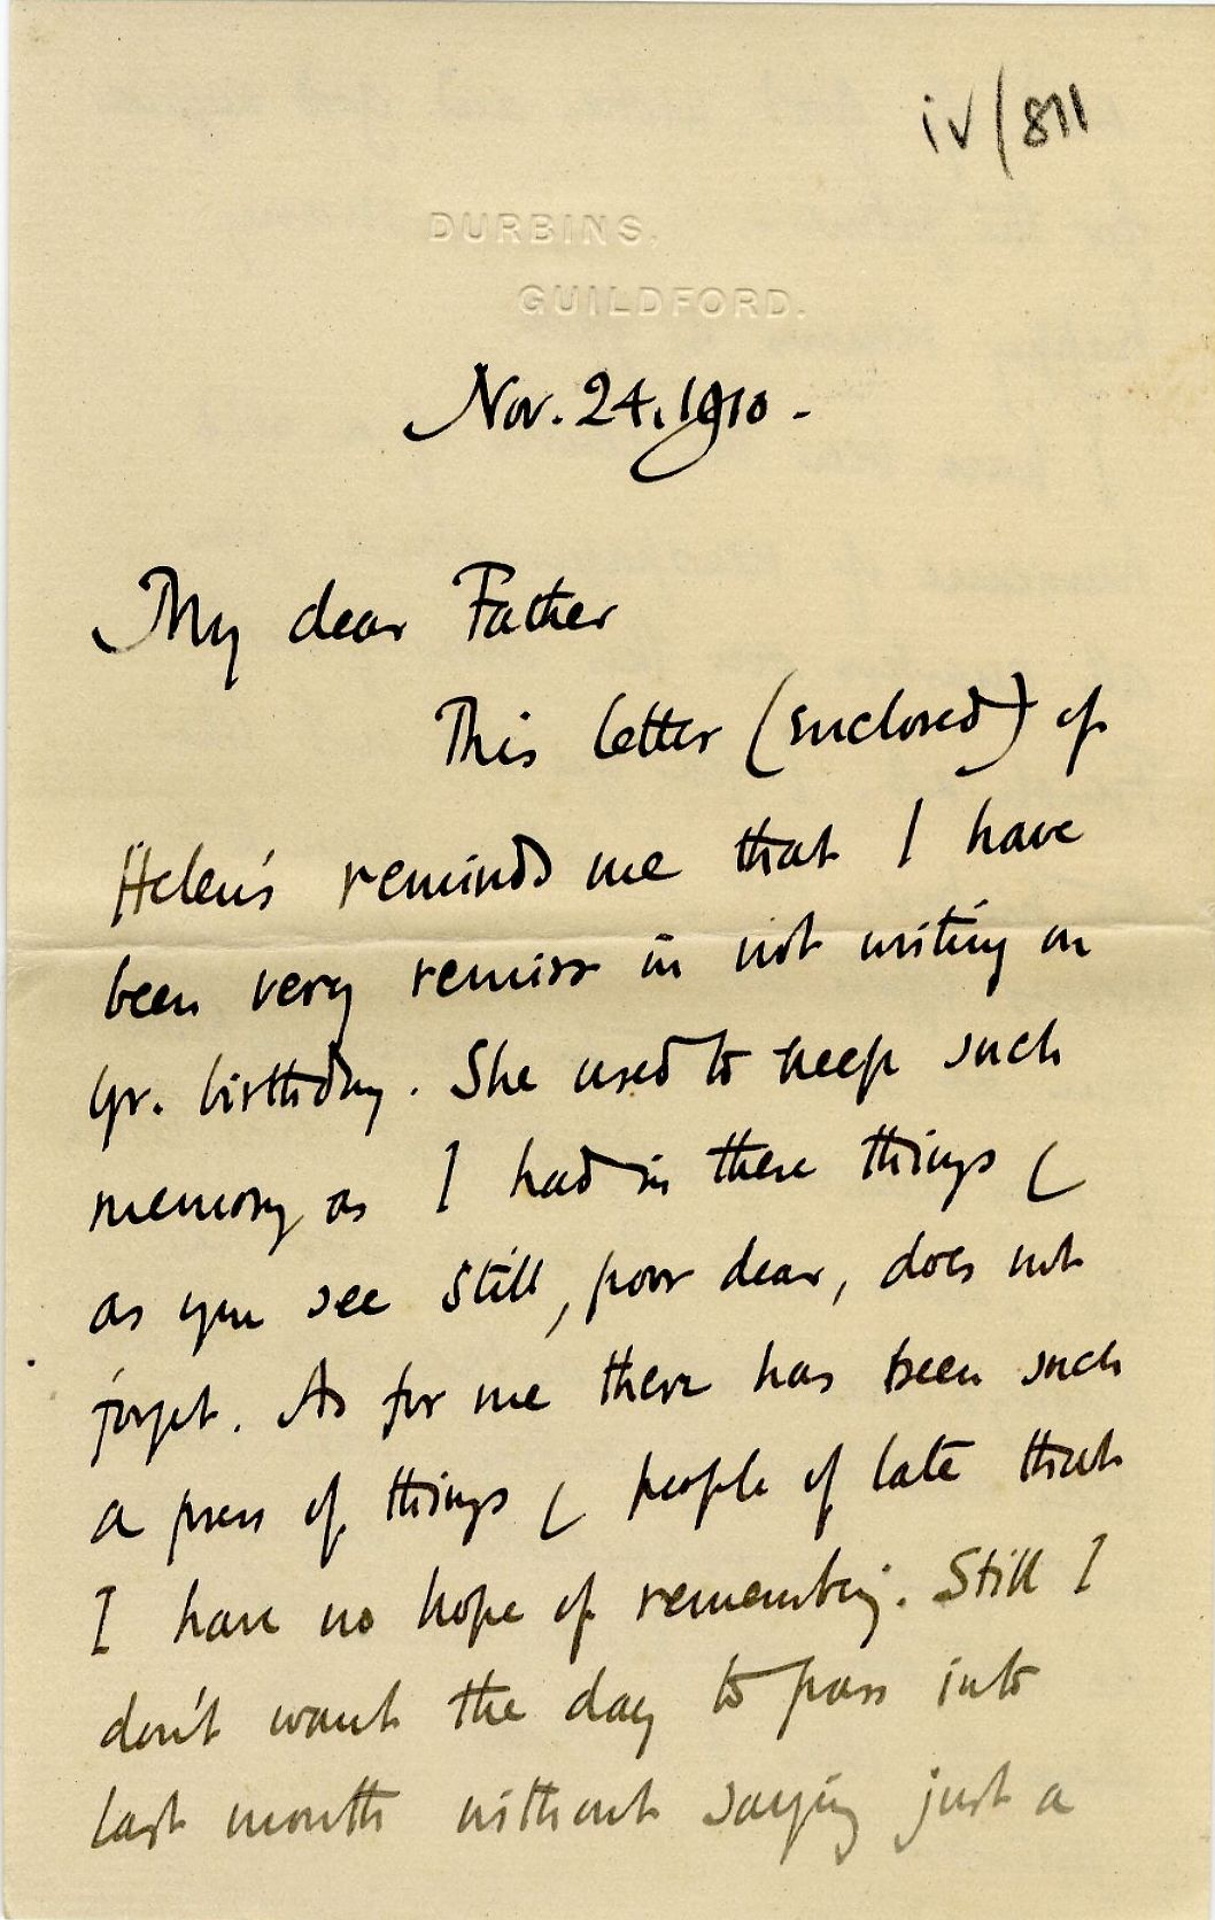 iv/811
DURBINS.
GUILDFORD.
Nov. 24. 1910 -
My dear Father
This letter (enclosed) of
Helen's reminds me that I have
been very remiss in not writing on
yr. birthday. She used to keep such
memory as I had in these things &
as you see still, poor dear, does not
forget. As for me there has been such
a press of things & people of late that
I have no hope of remembering. Still I
don't want the day to pass into
last month without saying just a